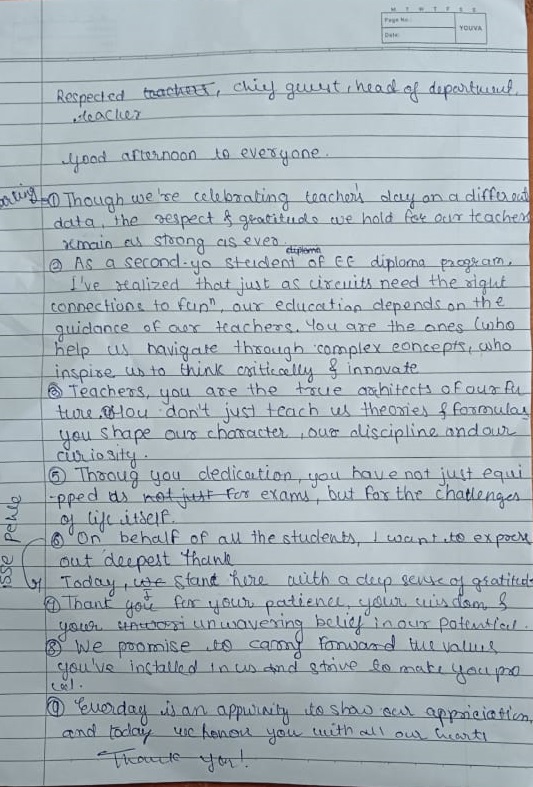 M T W T F S S
Page No.:
Date:
YOUVA
Respected teachers, chief guest, head of department,
teacher
Good afternoon to everyone.
① Though we're celebrating teacher's day on a different
data, the respect & gratitude we hold for our teachers
remain as strong as ever
diploma
② As a second-yo student of EE diploma program,
I've realized that just as circuits need the right
connections to funⁿ, our education depends on the
guidance of our teachers. You are the ones (who
help us navigate through complex concepts, who
inspire us to think critically & innovate
③ Teachers, you are the true architects of our fu
ture. ④ You don't just teach us theories & formulas
you shape our character, our discipline and our
curiosity.
⑤ Throug you dedication, you have not just equi
-pped us not just for exams, but for the challenges
of life itself.
⑥ On behalf of all the students, I want to express
out deepest thank
isse pehle
Today, we stand here with a deep sense of gratitude
I
⑦ Thank you for your patience, your wisdom &
your unwavering belief in our potential.
⑧ We promise to carry forward the values
you've installed in us and strive to make you pro
ud.
⑨ Everday is an appurnity to show our appriciation,
and today we honour you with all our hearts
Thank you!